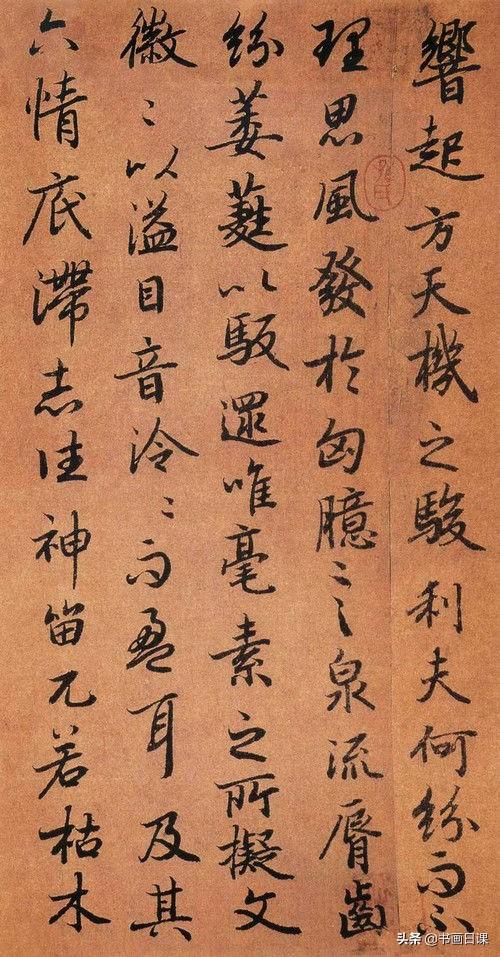 響起方天機之駿利夫何紛而不
理思風發於匈臆言泉流脣齒
紛萎蕤以馺遝唯毫素之所擬文
徽〻以溢目音泠〻而盈耳及其
六情底滯志往神留兀若枯木
头条 @书画日课